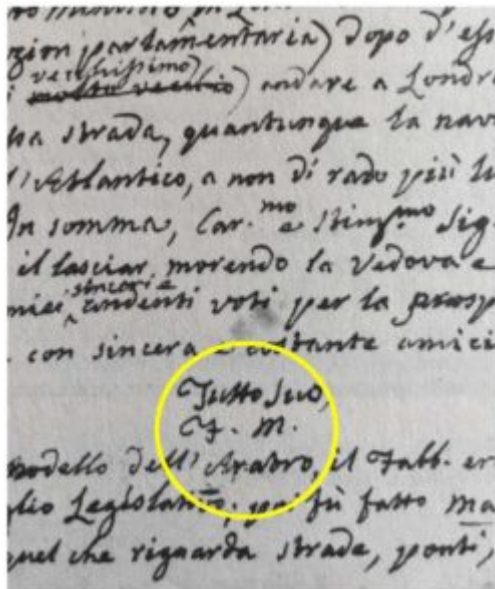 zion parlamentaria) dopo d'ess
vecchissimo
molto vecchio) andare a Londra
sua strada, quantunque la navi
l'Atlantico, a non di rado più lu
In somma, Car.mo e Stim.mo Sig
il lasciar, morendo la vedova e
sinceri e
miei ardenti voti per la prosp
con sincera e costante amici
Tutto Suo,
F. M.
modello dell'Aratro, il Fabb. er
glio Legislativo; poi fù fatto Ma
quel che riguarda strade, ponti,